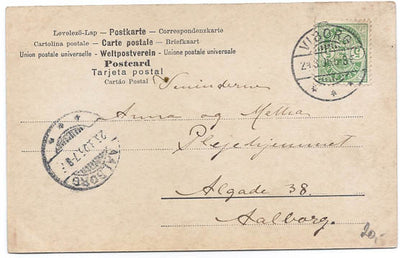 Levelező-Lap — Postkarte — Correspondenzkarte
Cartolina postale — Carte postale — Briefkaart
Union postale universelle — Weltpostverein — Unione postale universale
Postcard
Tarjeta postal
Cartão Postal
VIBORG
Veninderne
Anna og Mathea
Plejehjemmet
Algade 38.
Aalborg.
AALBORG
20,-